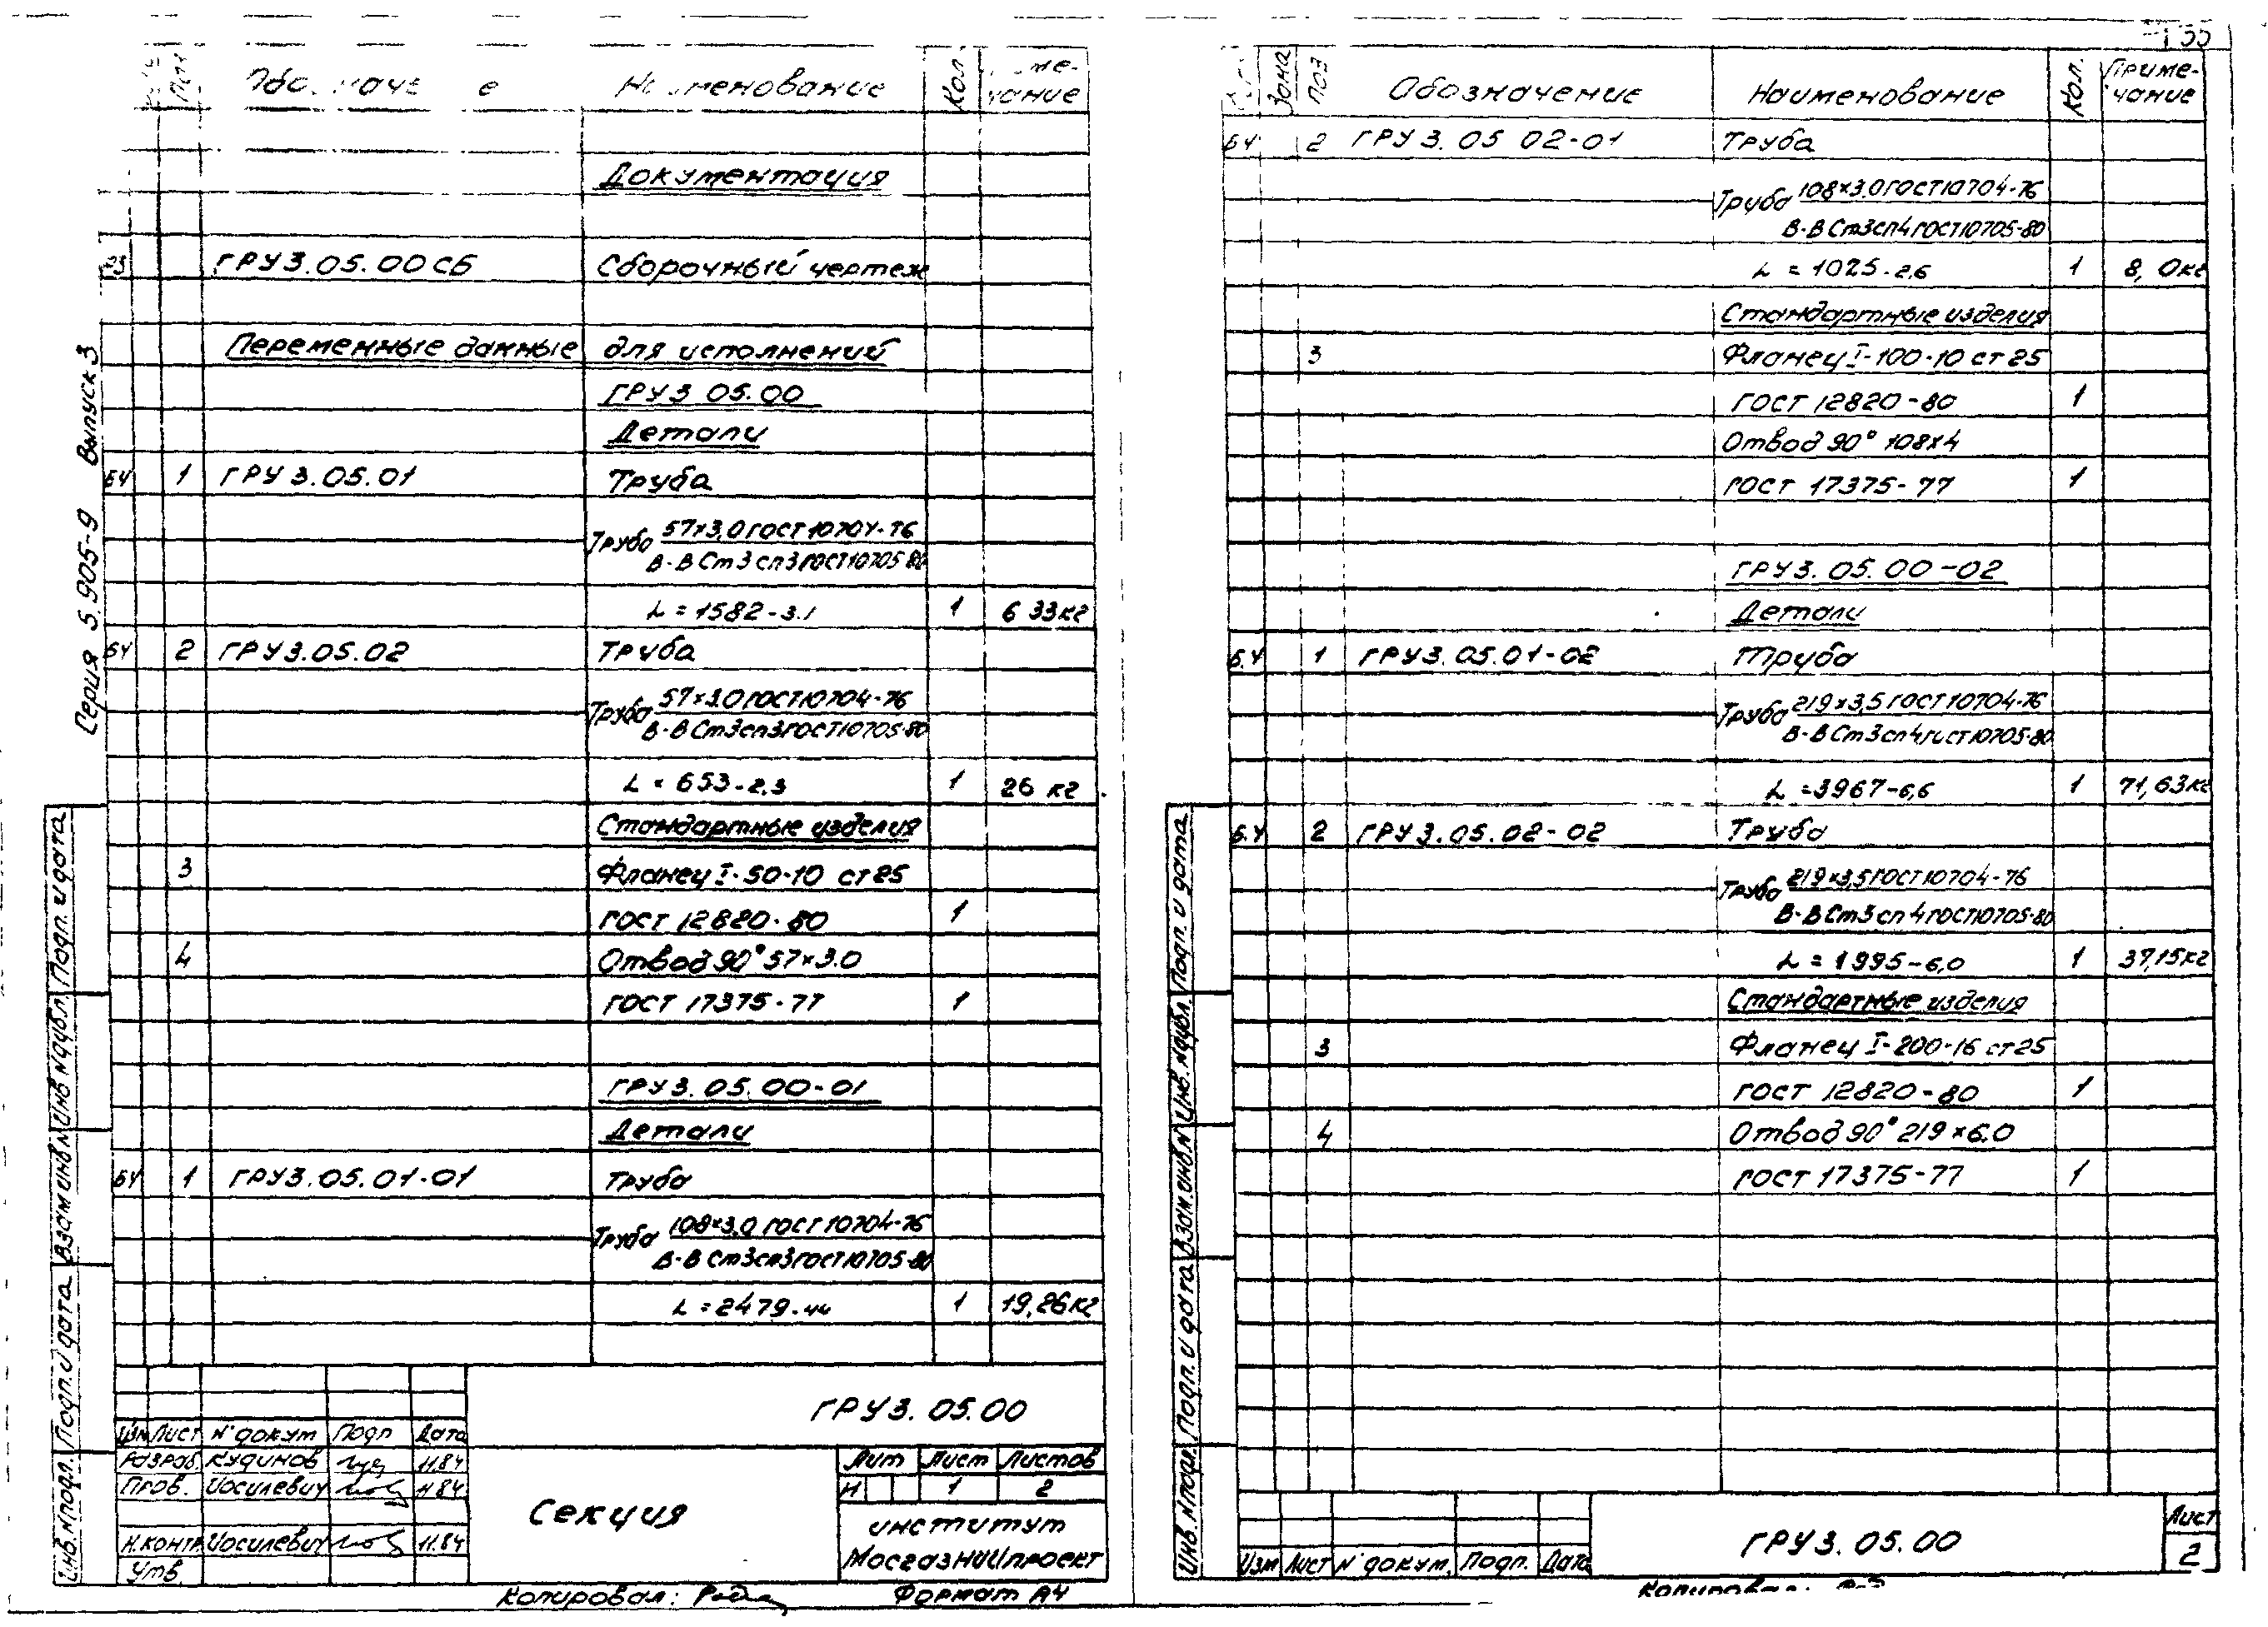 Поз Наименование Кол.
Документация
ГРУ 3.05.00 СБ Сборочный чертеж
Переменные данные для исполнений
ГРУ 3 05.00
Детали
БЧ 1 ГРУ 3.05.01 Труба
Труба 57×3,0 ГОСТ 10704-76
В-В Ст3сп3 ГОСТ 10705-80
L = 1582-3.1 1 6 33кг
БЧ 2 ГРУ 3.05.02 Труба
Труба 57×3.0 ГОСТ 10704-76
В-В Ст3сп3 ГОСТ 10705-80
L = 653-2,3 1 26 кг
Стандартные изделия
3 Фланец I-50-10 ст25
ГОСТ 12820-80 1
4 Отвод 90° 57×3.0
ГОСТ 17375-77 1
ГРУ 3.05.00-01
Детали
БЧ 1 ГРУ 3.05.01-01 Труба
Труба 108×3,0 ГОСТ 10704-76
В-В Ст3сп3 ГОСТ 10705-80
L = 2479-4,4 1 19,26 кг
ГРУ 3.05.00
Изм Лист N°докум Подп Дата
Разраб. Кудинов 11.84
Пров. Иосилевич 11.84
Н.контр. Иосилевич 11.84
Утв.
Секция
Лит Лист Листов
И 1 2
институт
МосгазНИИпроект
Копировал: Формат А4
Серия 5.905-9 Выпуск 3
Инв.N подл. Подп. и дата Взам инв.N Инв N дубл. Подп. и дата
Зона Поз Обозначение Наименование Кол. Приме-
чание
БЧ 2 ГРУ 3.05 02-01 Труба
Труба 108×3.0 ГОСТ 10704-76
В-В Ст3сп4 ГОСТ 10705-80
L = 1025-2,6 1 8,0кг
Стандартные изделия
3 Фланец I-100-10 ст25
ГОСТ 12820-80 1
Отвод 90° 108×4
ГОСТ 17375-77 1
ГРУ 3.05.00-02
Детали
БЧ 1 ГРУ 3.05.01-02 Труба
Труба 219×3,5 ГОСТ 10704-76
В-В Ст3сп4 ГОСТ 10705-80
L = 3967-6,6 1 71,63кг
БЧ 2 ГРУ 3.05.02-02 Труба
Труба 219×3,5 ГОСТ 10704-76
В-В Ст3сп4 ГОСТ 10705-80
L = 1995-6,0 1 37,15кг
Стандартные изделия
3 Фланец I-200-16 ст25
ГОСТ 12820-80 1
4 Отвод 90° 219×6.0
ГОСТ 17375-77 1
Изм Лист N°докум. Подп. Дата
ГРУ 3.05.00
Лист
2
Инв.N подл. Подп. и дата Взам.инв.N Инв.N дубл. Подп. и дата